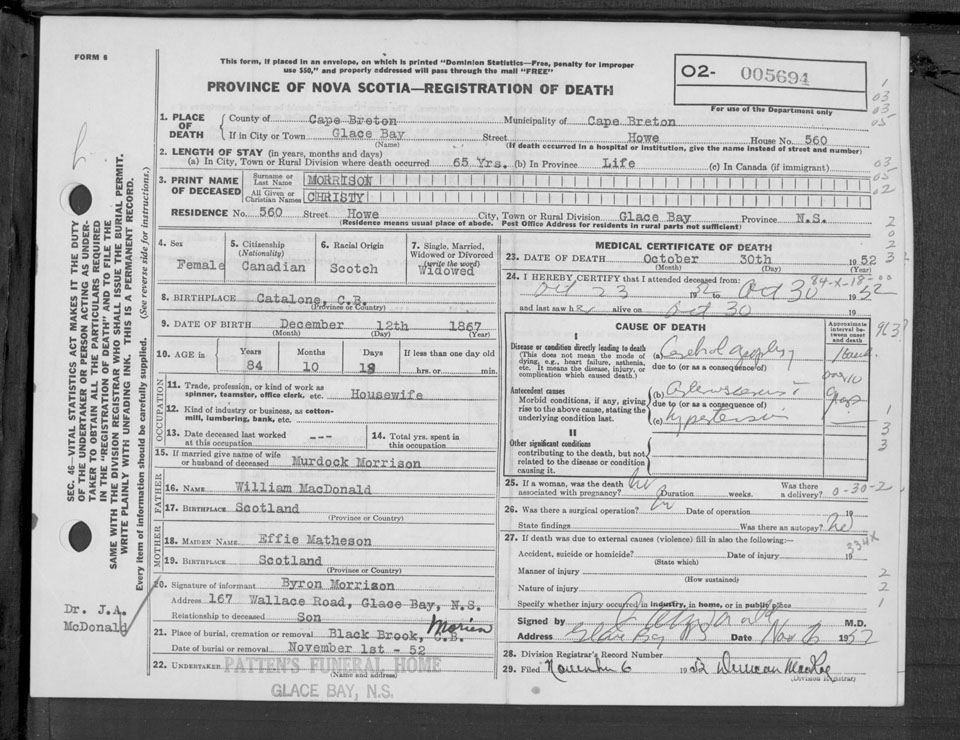 FORM 6
This form, if placed in an envelope, on which is printed "Dominion Statistics—Free, penalty for improper
use $50," and properly addressed will pass through the mail "FREE"
O2- 005694
For use of the Department only
PROVINCE OF NOVA SCOTIA—REGISTRATION OF DEATH
1. PLACE OF DEATH
County of Cape Breton Municipality of Cape Breton
If in City or Town Glace Bay Street Howe House No. 560
(Name) (If death occurred in a hospital or institution, give the name instead of street and number)
2. LENGTH OF STAY (in years, months and days)
(a) In City, Town or Rural Division where death occurred 65 Yrs. (b) In Province Life (c) In Canada (if immigrant)
3. PRINT NAME OF DECEASED
Surname or Last Name MORRISON
All Given or Christian Names CHRISTY
RESIDENCE No. 560 Street Howe City, Town or Rural Division Glace Bay Province N.S.
(Residence means usual place of abode. Post Office Address for residents in rural parts not sufficient)
4. Sex
Female
5. Citizenship
(Nationality)
Canadian
6. Racial Origin
Scotch
7. Single, Married,
Widowed or Divorced
(write the word)
Widowed
8. BIRTHPLACE Catalone, C.B.
9. DATE OF BIRTH December 12th 1867
(Month) (Day) (Year)
10. AGE in
Years Months Days If less than one day old
84 10 18 hrs. or min.
OCCUPATION
11. Trade, profession, or kind of work as
spinner, teamster, office clerk, etc. Housewife
12. Kind of industry or business, as cotton-
mill, lumbering, bank, etc.
13. Date deceased last worked
at this occupation ---
14. Total yrs. spent in
this occupation
15. If married give name of wife
or husband of deceased Murdock Morrison
FATHER
16. NAME William MacDonald
17. BIRTHPLACE Scotland
(Province or Country)
MOTHER
18. MAIDEN NAME Effie Matheson
19. BIRTHPLACE Scotland
(Province or Country)
20. Signature of informant Byron Morrison
Address 167 Wallace Road, Glace Bay, N.S.
Relationship to deceased Son
21. Place of burial, cremation or removal Black Brook, C.B. Morien
Date of burial or removal November 1st - 52
22. UNDERTAKER PATTEN'S FUNERAL HOME
(Name and address)
GLACE BAY, N.S.
MEDICAL CERTIFICATE OF DEATH
23. DATE OF DEATH October 30th 1952
(Month) (Day) (Year)
24. I HEREBY CERTIFY that I attended deceased from: 84-X-18-00
Oct 23 1952 to Oct 30 1952
and last saw her alive on Oct 30 19
CAUSE OF DEATH
Approximate
interval between onset
and death
I
Disease or condition directly leading to death
(This does not mean the mode of
dying, e.g., heart failure, asthenia,
etc. It means the disease, injury, or
complication which caused death.)
(a)
due to (or as a consequence of)
Antecedent causes
Morbid conditions, if any, giving
rise to the above cause, stating the
underlying condition last.
(b)
due to (or as a consequence of)
(c) hypertension
II
Other significant conditions
contributing to the death, but not
related to the disease or condition
causing it.
25. If a woman, was the death
associated with pregnancy? no Duration weeks. Was there
a delivery? 0-30-2
26. Was there a surgical operation? no Date of operation 19
State findings Was there an autopsy? no
27. If death was due to external causes (violence) fill in also the following:—
334X
Accident, suicide or homicide? Date of injury 19
(State which)
Manner of injury
(How sustained)
Nature of injury
Specify whether injury occurred in industry, in home, or in public place
Signed by M.D.
Address Glace Bay NS Date Nov 6 1952
28. Division Registrar's Record Number
29. Filed November 6 1952 Duncan MacRae
(Division Registrar)
SEC. 46—VITAL STATISTICS ACT MAKES IT THE DUTY
OF THE UNDERTAKER OR PERSON ACTING AS UNDER-
TAKER TO OBTAIN ALL THE PARTICULARS REQUIRED
IN THE "REGISTRATION OF DEATH" AND TO FILE THE
SAME WITH THE DIVISION REGISTRAR WHO SHALL ISSUE THE BURIAL PERMIT.
WRITE PLAINLY WITH UNFADING INK. THIS IS A PERMANENT RECORD.
Every item of information should be carefully supplied. (See reverse side for instructions.)
Dr. J.A.
McDonald